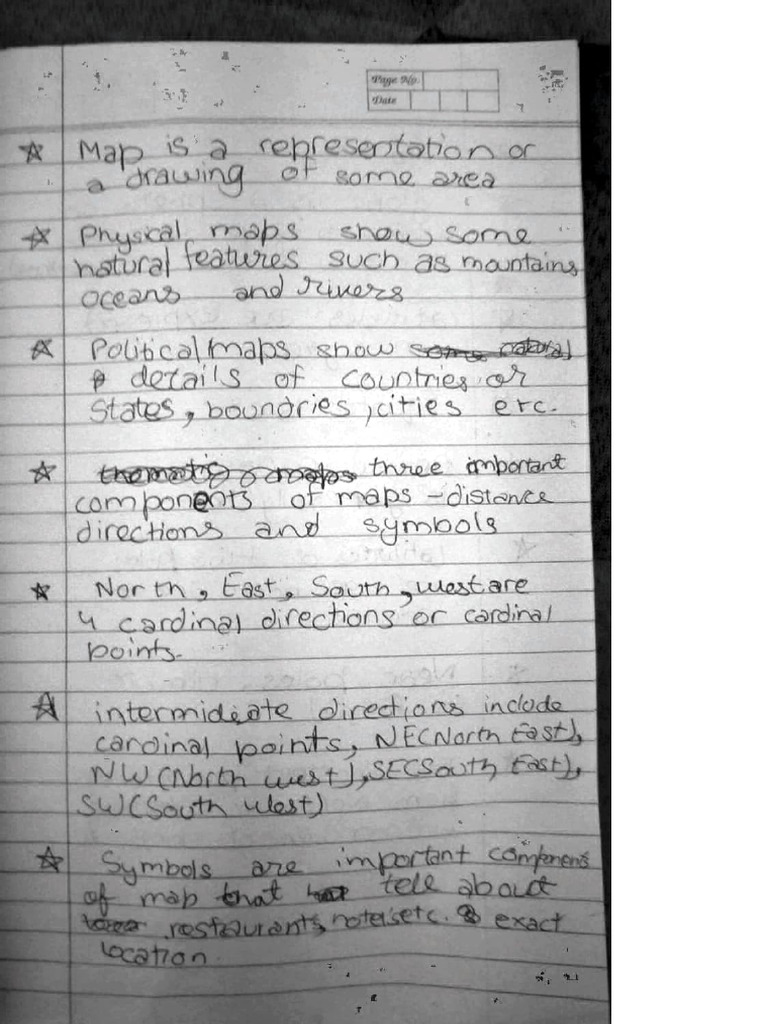 Page No.
Date
☆ Map is a representation or
a drawing of some area
☆ Physical maps show some
natural features such as mountains
oceans and rivers
☆ Political maps show some natural
details of countries or
States, boundries, cities etc.
☆ thematic maps three important
components of maps - distance
directions and symbols
☆ North, East, South, west are
4 cardinal directions or cardinal
points.
☆ intermideate directions include
cardinal points, NE(North East),
NW(North west), SE(South East),
SW(South West)
☆ Symbols are important
of map that tell about
restaurants, etc. & exact
location.